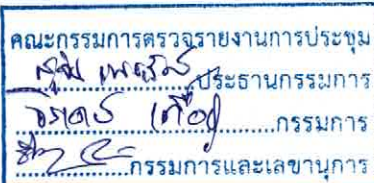 คณะกรรมการตรวจรายงานการประชุม
ประธานกรรมการ
กรรมการ
กรรมการและเลขานุการ